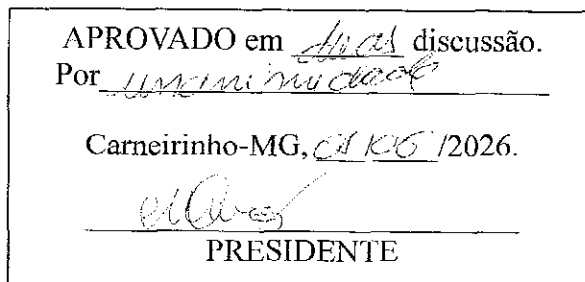 APROVADO em duas discussão.
Por unanimidade
Carneirinho-MG, 01/06/2026.
PRESIDENTE